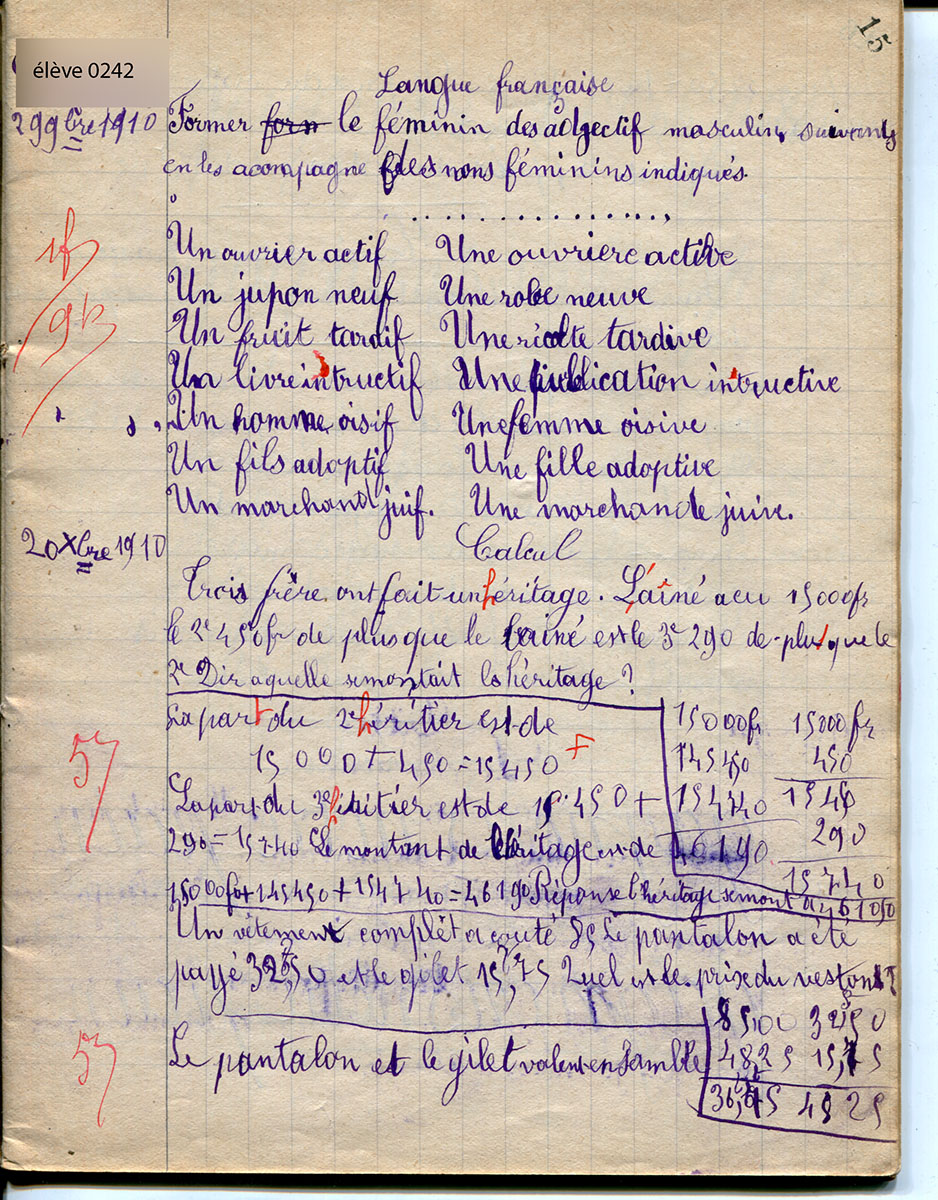 15
élève 0242
Langue française
29 9bre 1910 Former le féminin des adgectif masculin, suivants
en les acompagne des noms féminins indiqués.
Un ouvrier actif Une ouvriere active
1f
Un jupon neuf Une robe neuve
9b
Un fruit tardif Une ricolte tardive
Un livre intructif Une publication intructive
Un homme oisif Une femme oisive
Un fils adoptif Une fille adoptive
Un marchand juif. Une marchande juive.
20 Xbre 1910 Calcul
Trois frère ont fait un héritage. L'aîné a eu 15000fr
le 2e 450fr de plus que le ainé est le 3e 290 de plus que le
2e Dir a quelle se montait l héritage ?
La part du 2e héritier est de 15000fr 15000fr
15000 + 450 = 15450 F 15450 450
La part du 3e héritier est de 15.450 + 15740 1545
57
290 = 15740 Le montant de l'héritage est de 46.190 290
15740
15000fr + 145450 + 154740 = 46190 Réponse l'héritage se mont a 46190
Un vêtement complèt a couté 85 Le pantalon a été
payé 32,50 et le gilet 15,75 Quel est le prix du veston ?
85,00 3250
57
Le pantalon et le gilet valent ensamble 4825 15,75
36,75 4825